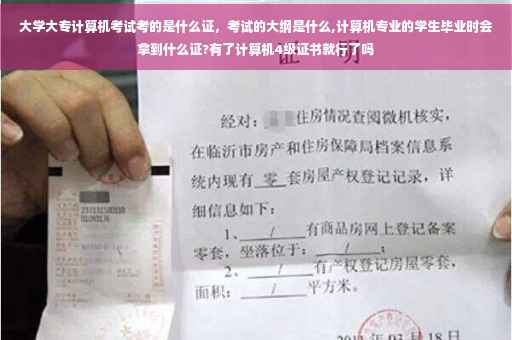 大学大专计算机考试考的是什么证，考试的大纲是什么,计算机专业的学生毕业时会
拿到什么证?有了计算机4级证书就行了吗
证 明
经对：住房情况查阅微机核实，
在临沂市房产和住房保障局档案信息系
统内现有 零 套房屋产权登记记录，详
细信息如下：
1、 / 有商品房网上登记备案
零套，坐落位于： / ；
2、 / 有产权登记房屋零套，
面积： / 平方米。
03 月 18 日